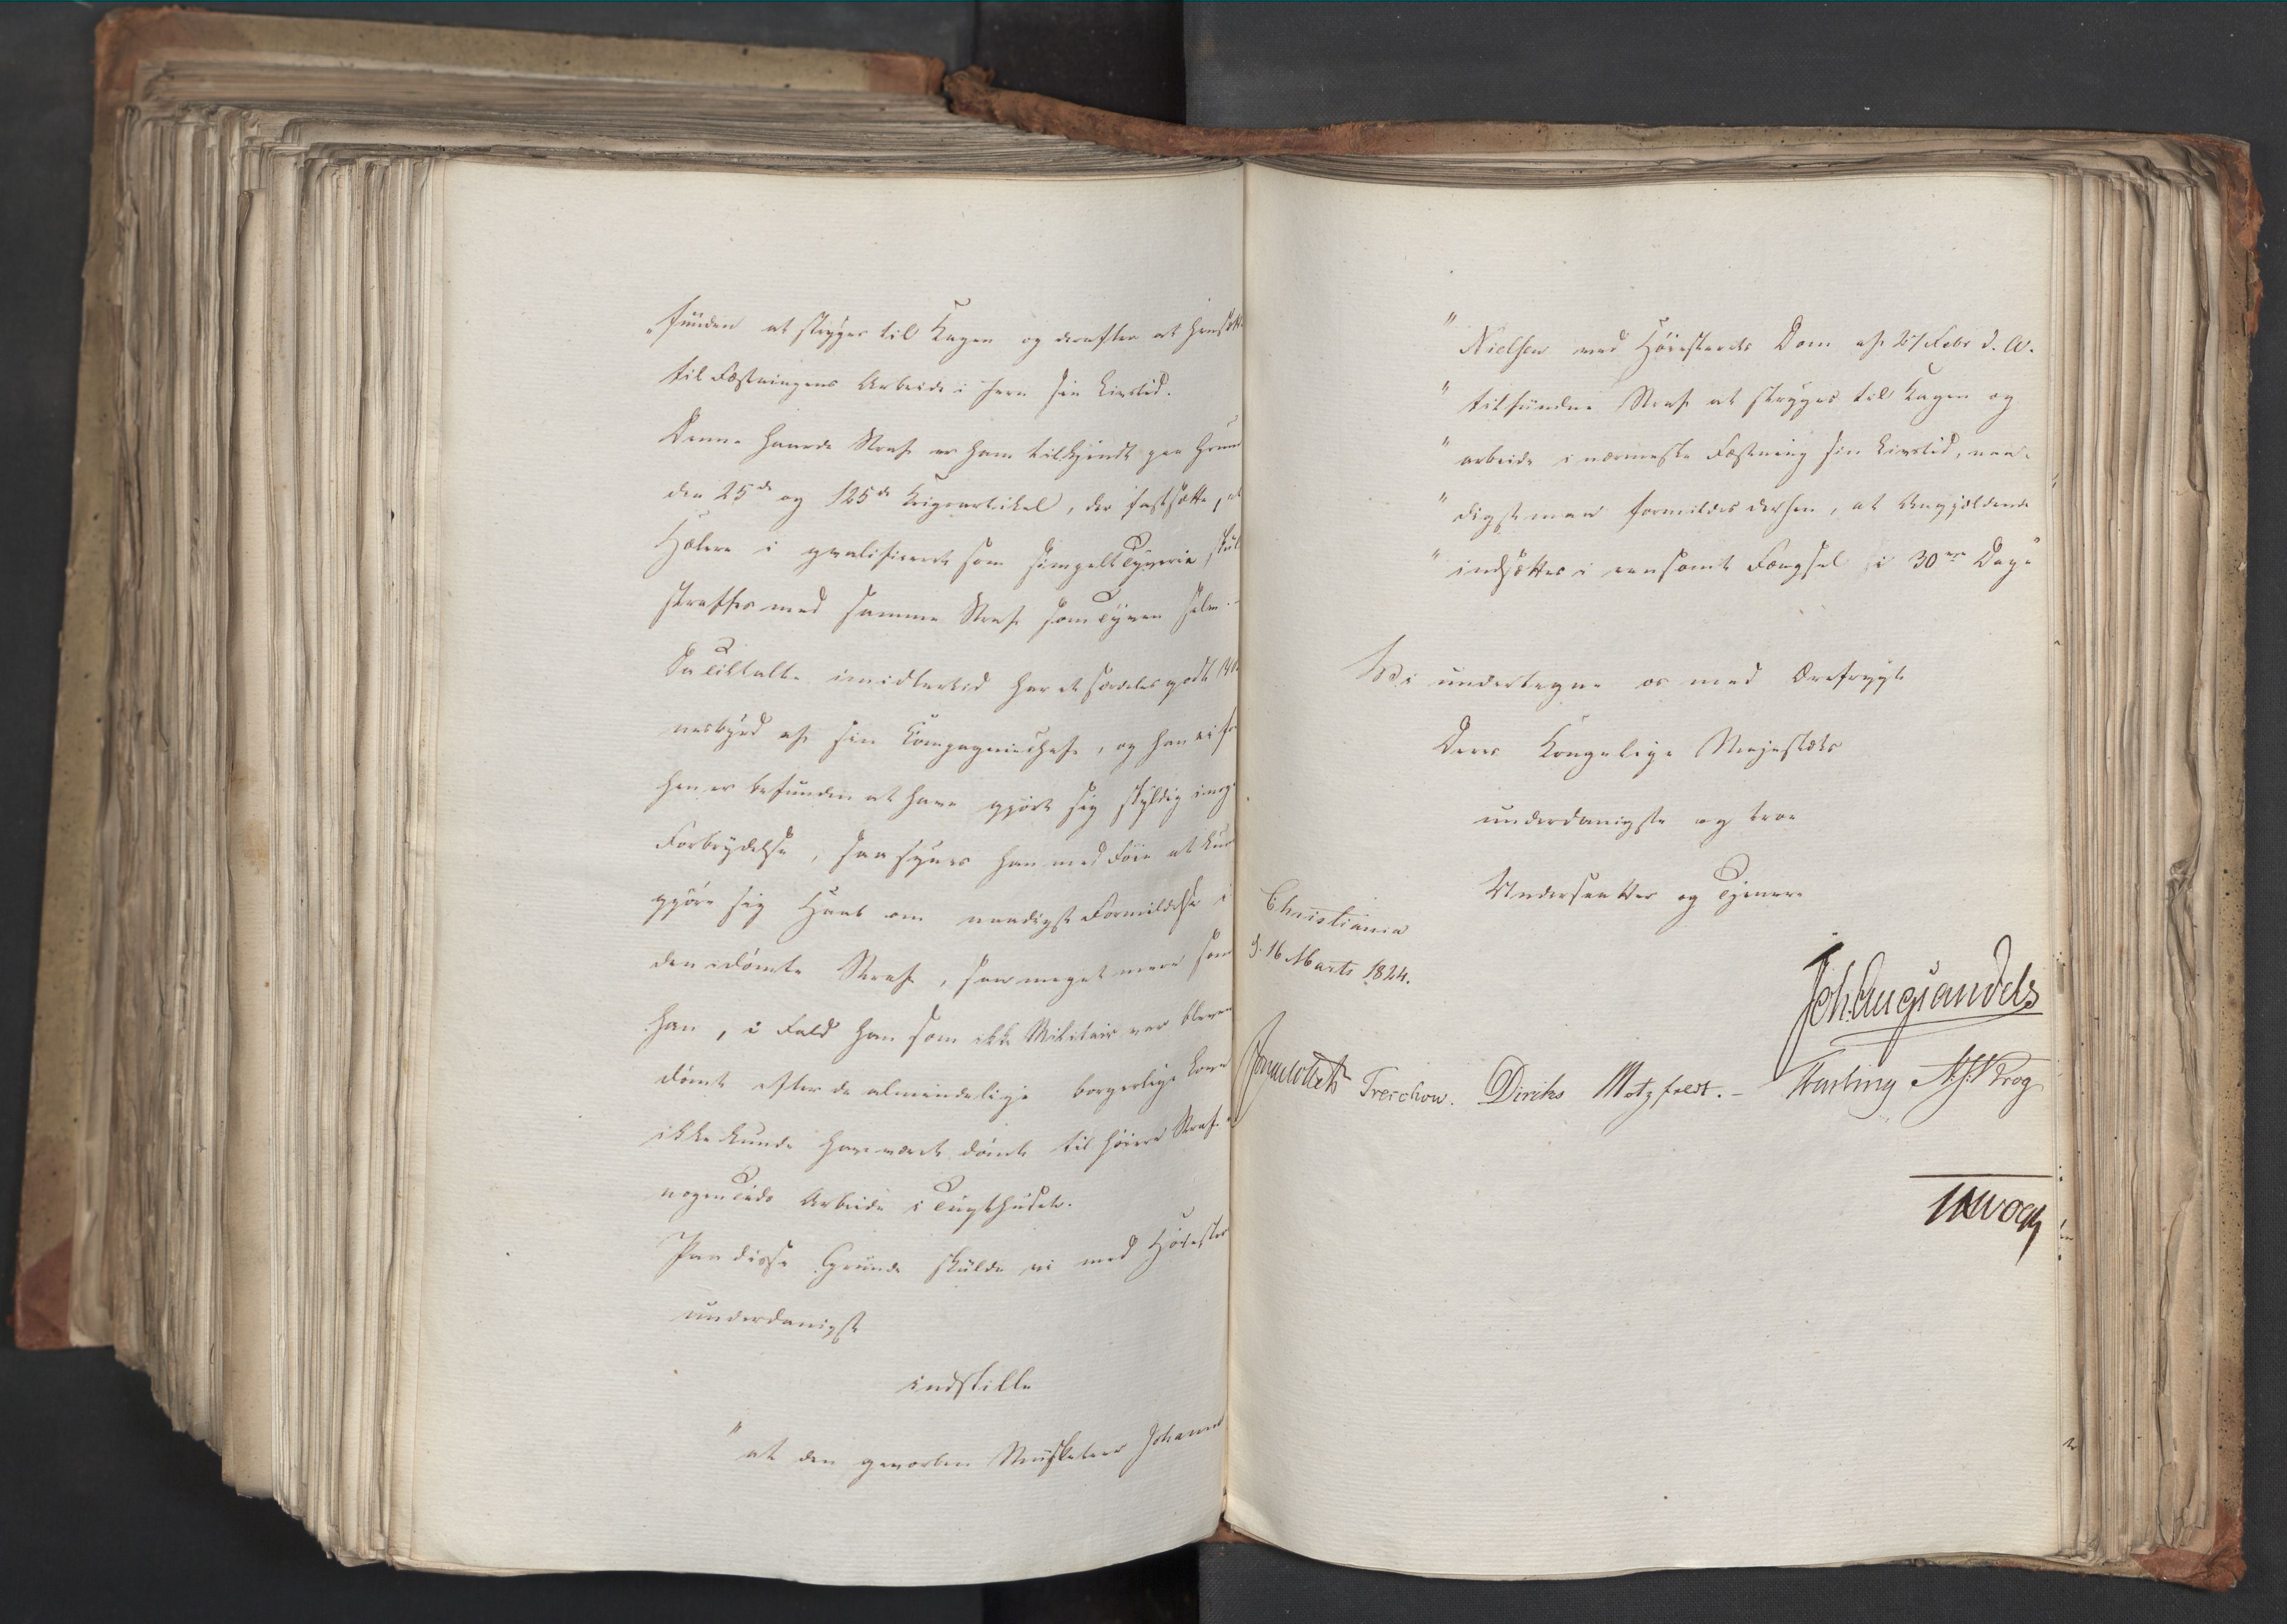 "funden at stryges til Kagen og derefter at hensætte
til Fæstningens Arbeide i Jern sin Livstid.
Denne haarde Straf er ham tilkjendt paa Grund
den 25de og 125de Krigsartikel, der fastsætte, at
Hælere i qvalificeret som simpelt Tyverie skul
straffes med samme Straf som Tyven selv.-
Da Tiltalte imidlertid har et særdeles godt Vid
nesbyrd af sin Compagniechef, og han ei før
hen er befunden at have gjort sig skyldig i nog
Forbrydelse, saa synes han med Føie at kun
gjøre sig Haab om naadigst Formildelse i
den idømte Straf, saa meget mere som
han, i Fald han som ikke Militair var bleven
dømt efter de almindelige borgerlige Love
ikke kunde have været dømt til høiere Straf e
nogen Tids Arbeide i Tugthuset.
Paa disse Grunde skulde vi med Høiester
underdanigst
indstille
"at den gevorben Musketeer Johannes
" Nielsen ved Høiesterets Dom af 27 Febr d. A.
" tilfundne Straf at stryges til Kagen og
" arbeide i nærmeste Fæstning sin Livstid, naa-
" digst maa formildes derhen, at Angjældende
" indsættes i eensomt Fængsel i 30ve Dage"
Vi undertegne os med Ærefrygt
Deres Kongelige Majestæts
underdanigste og troe
Undersaatter og Tjenere
Christiania
d. 16 Marts 1824.
Joh. Aug. Sandels
Sommerhielm Treschow. Diriks Motzfeldt.- Fasting Krog
Vogt